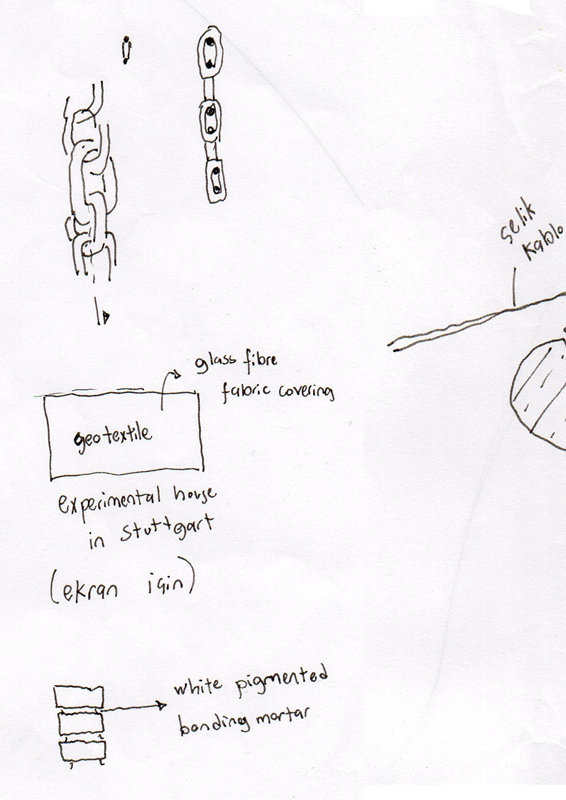 çelik
kablo
glass fibre
fabric covering
geotextile
experimental house
in Stuttgart
(ekran için)
white pigmented
bonding mortar